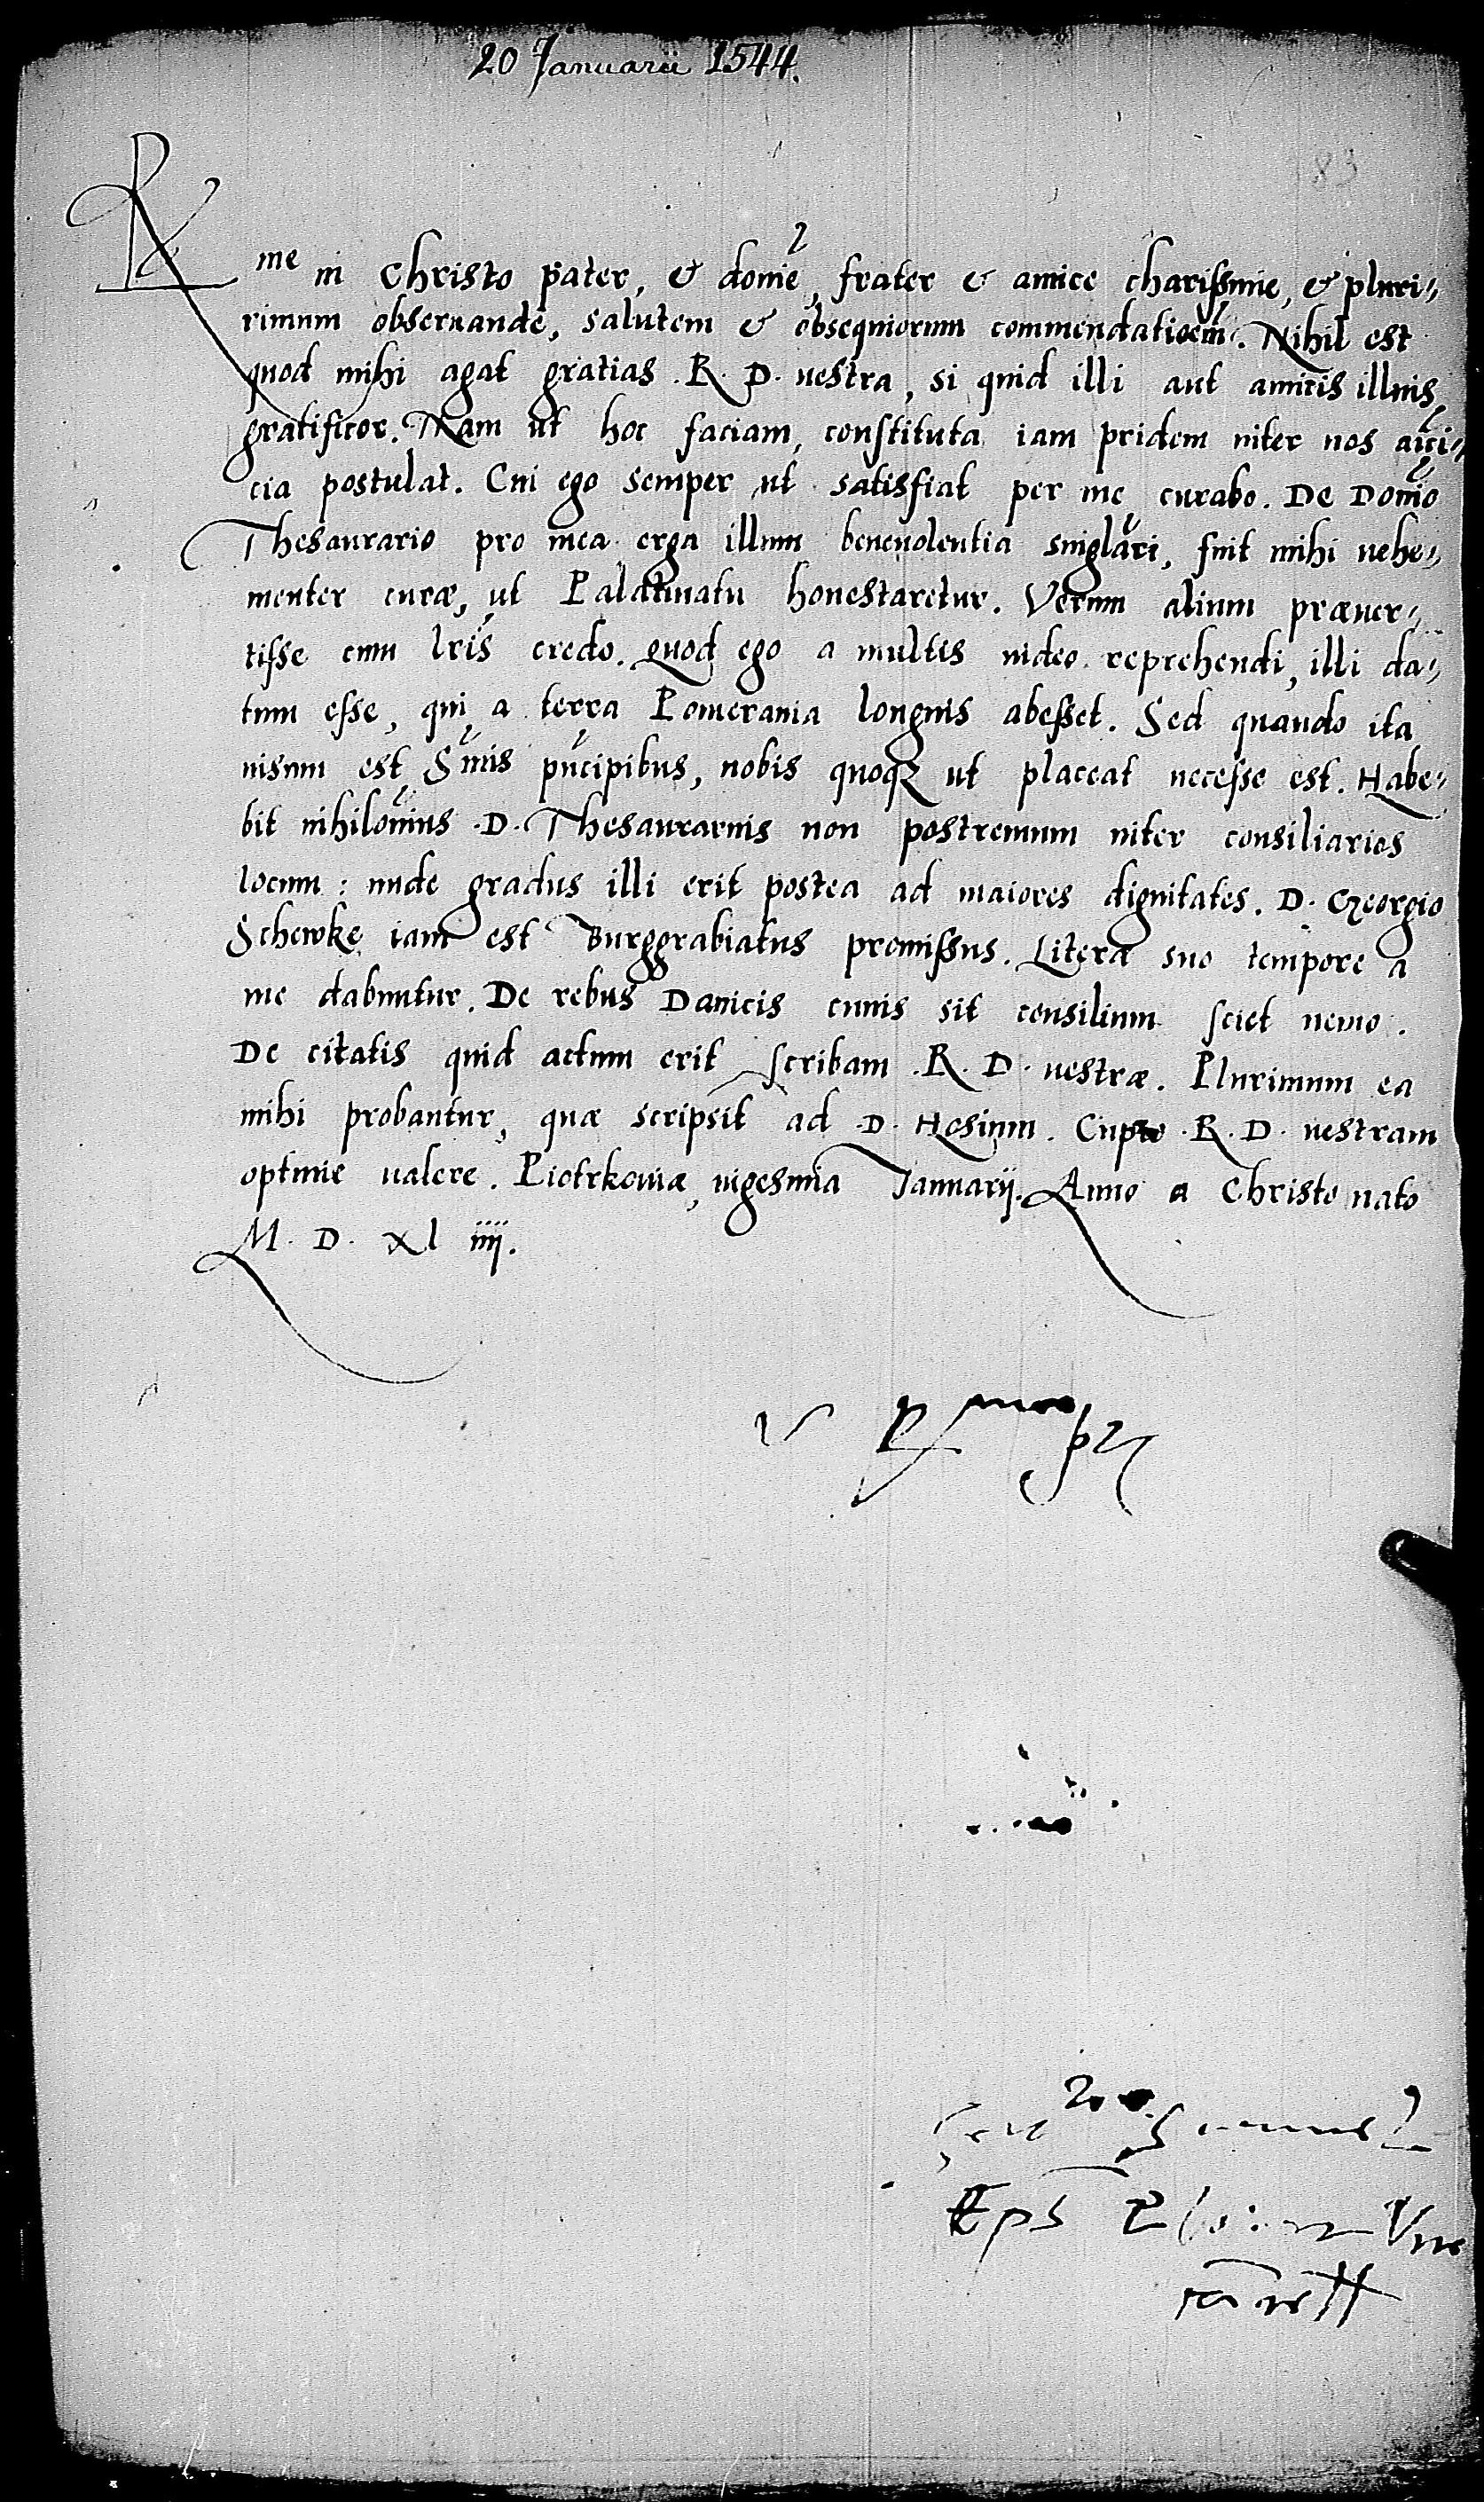 20 Januarii 1544.
83
R me in Christo pater, & domine, frater & amice charissime, & pluri„
rimum obseruande, salutem & obsequiorum commendationem. Nihil est
quod mihi agat gratias .R. D. uestra, si quid illi aut amicis illius
gratificor. Nam ut hoc faciam, constituta iam pridem inter nos amici„
cia postulat. Cui ego semper ut satisfiat per me curabo. De Domino
Thesaurario pro mea erga illum beneuolentia singlari, fuit mihi uehe„
menter curæ, ut Palatinatu honestaretur. Verum alium præuer„
tisse cum lris credo. Quod ego a multis uideo reprehendi, illi da„
tum esse, qui a terra Pomerania longius abesset. Sed quando ita
uisum est Smis pncipibus, nobis quoqz ut placeat necesse est. Habe„
bit nihilominus .D. Thesaurarius non postremum inter consiliarios
locum: unde gradus illi erit postea ad maiores dignitates. D. Georgio
Schewke iam est Burggrabiatus promissus. Literæ suo tempore a
me dabuntur. De rebus Danicis cuius sit consilium sciet nemo.
De citatis quid actum erit scribam .R. D. uestræ. Plurimum ea
mihi probantur, quæ scripsit ad .D. Hosium. Cupio .R. D. uestram
optime ualere. Piotrkouiæ, uigesima Januarij. Anno a Christo nato
M. D. xl iiij.
Eps